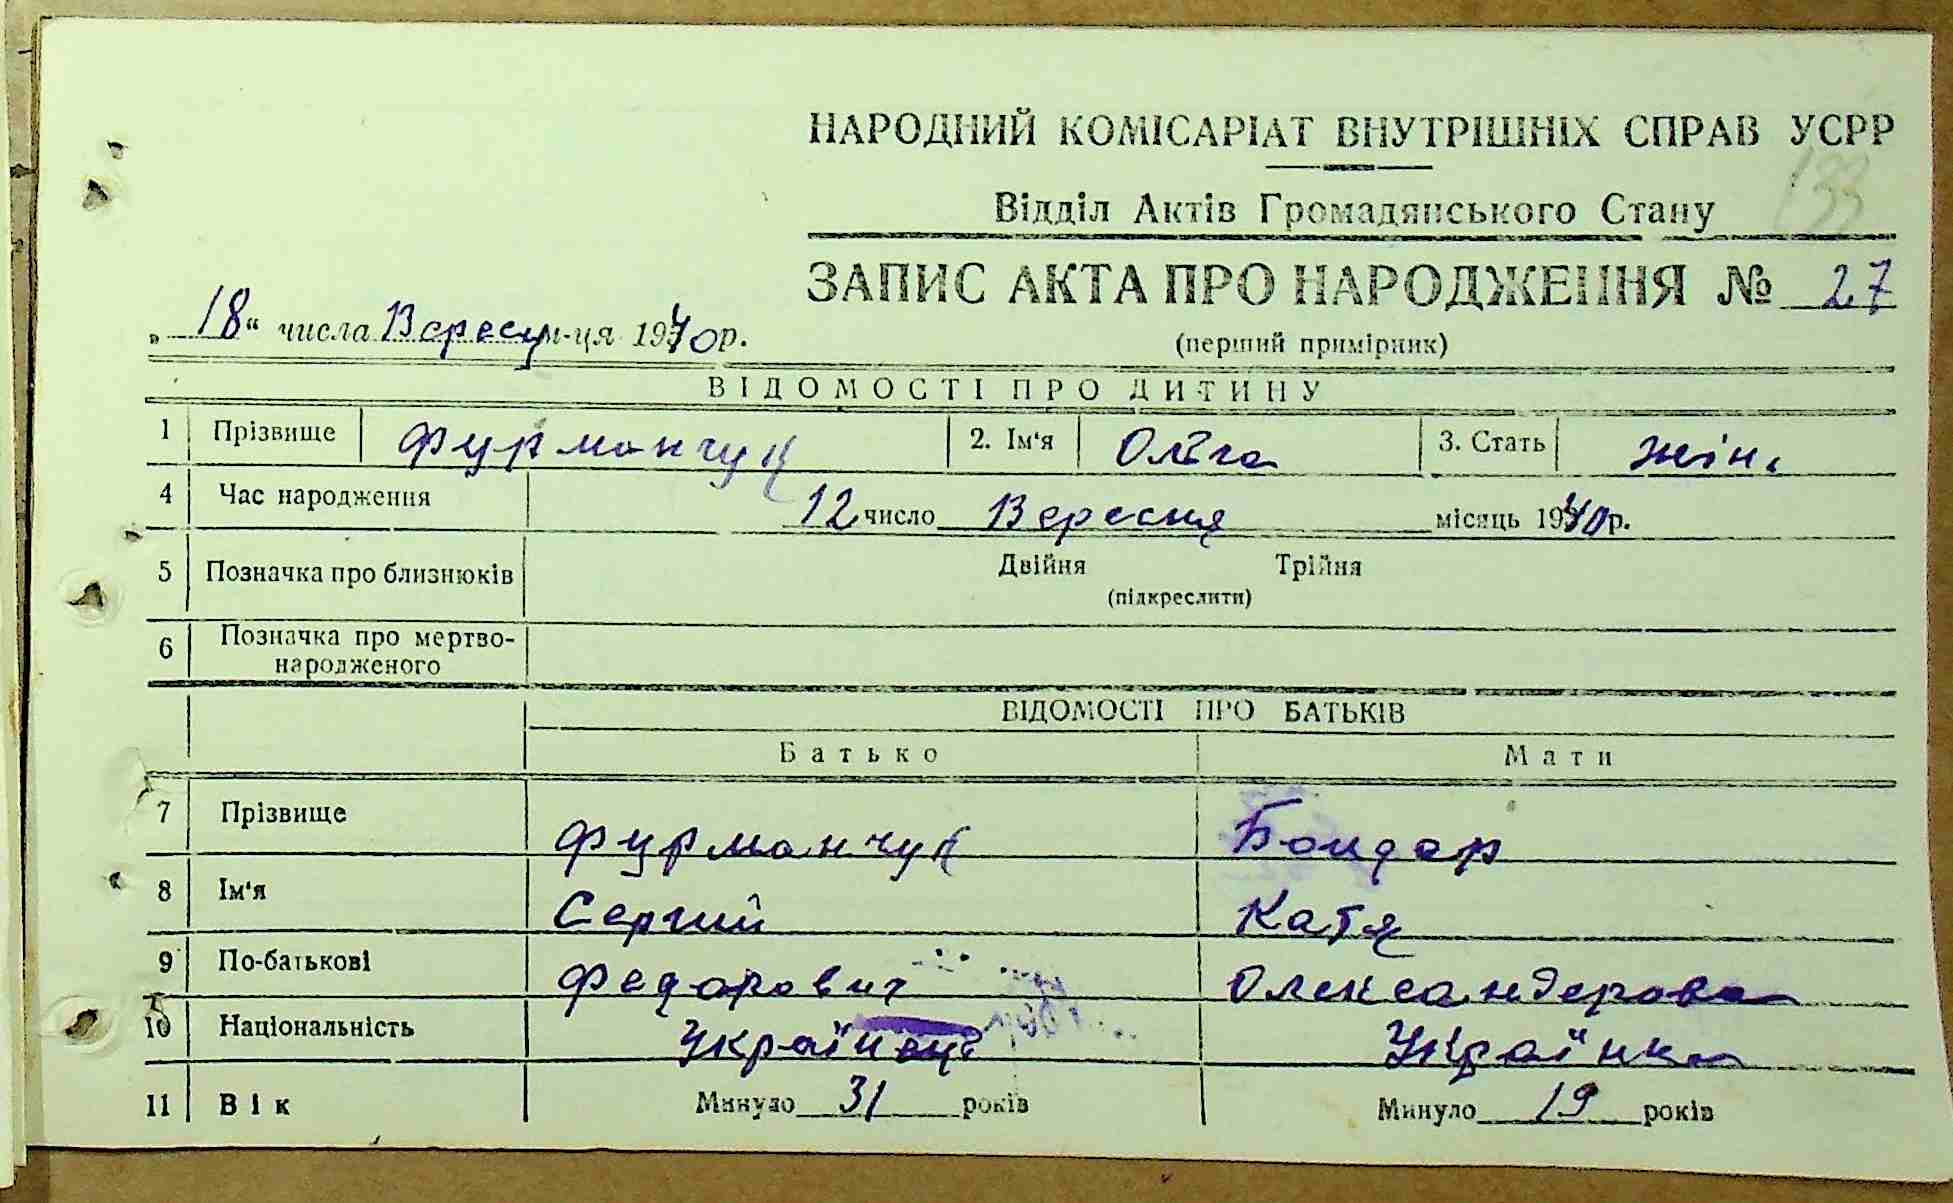 НАРОДНИЙ КОМІСАРІАТ ВНУТРІШНІХ СПРАВ УСРР
133
Відділ Актів Громадянського Стану
ЗАПИС АКТА ПРО НАРОДЖЕННЯ № 27
„18“ числа Вересня м-ця 1940 р.
(перший примірник)
ВІДОМОСТІ ПРО ДИТИНУ
1 Прізвище Фурманчук 2. Ім'я Ольга 3. Стать жін.
4 Час народження 12 число Вересня місяць 1940 р.
5 Позначка про близнюків Двійня Трійня
(підкреслити)
6 Позначка про мертво-
народженого
ВІДОМОСТІ ПРО БАТЬКІВ
Батько Мати
7 Прізвище Фурманчук Бондар
8 Ім'я Сергий Катя
9 По-батькові Федорович Олександерова
10 Національність Українец Українка
11 Вік Минуло 31 років Минуло 19 років